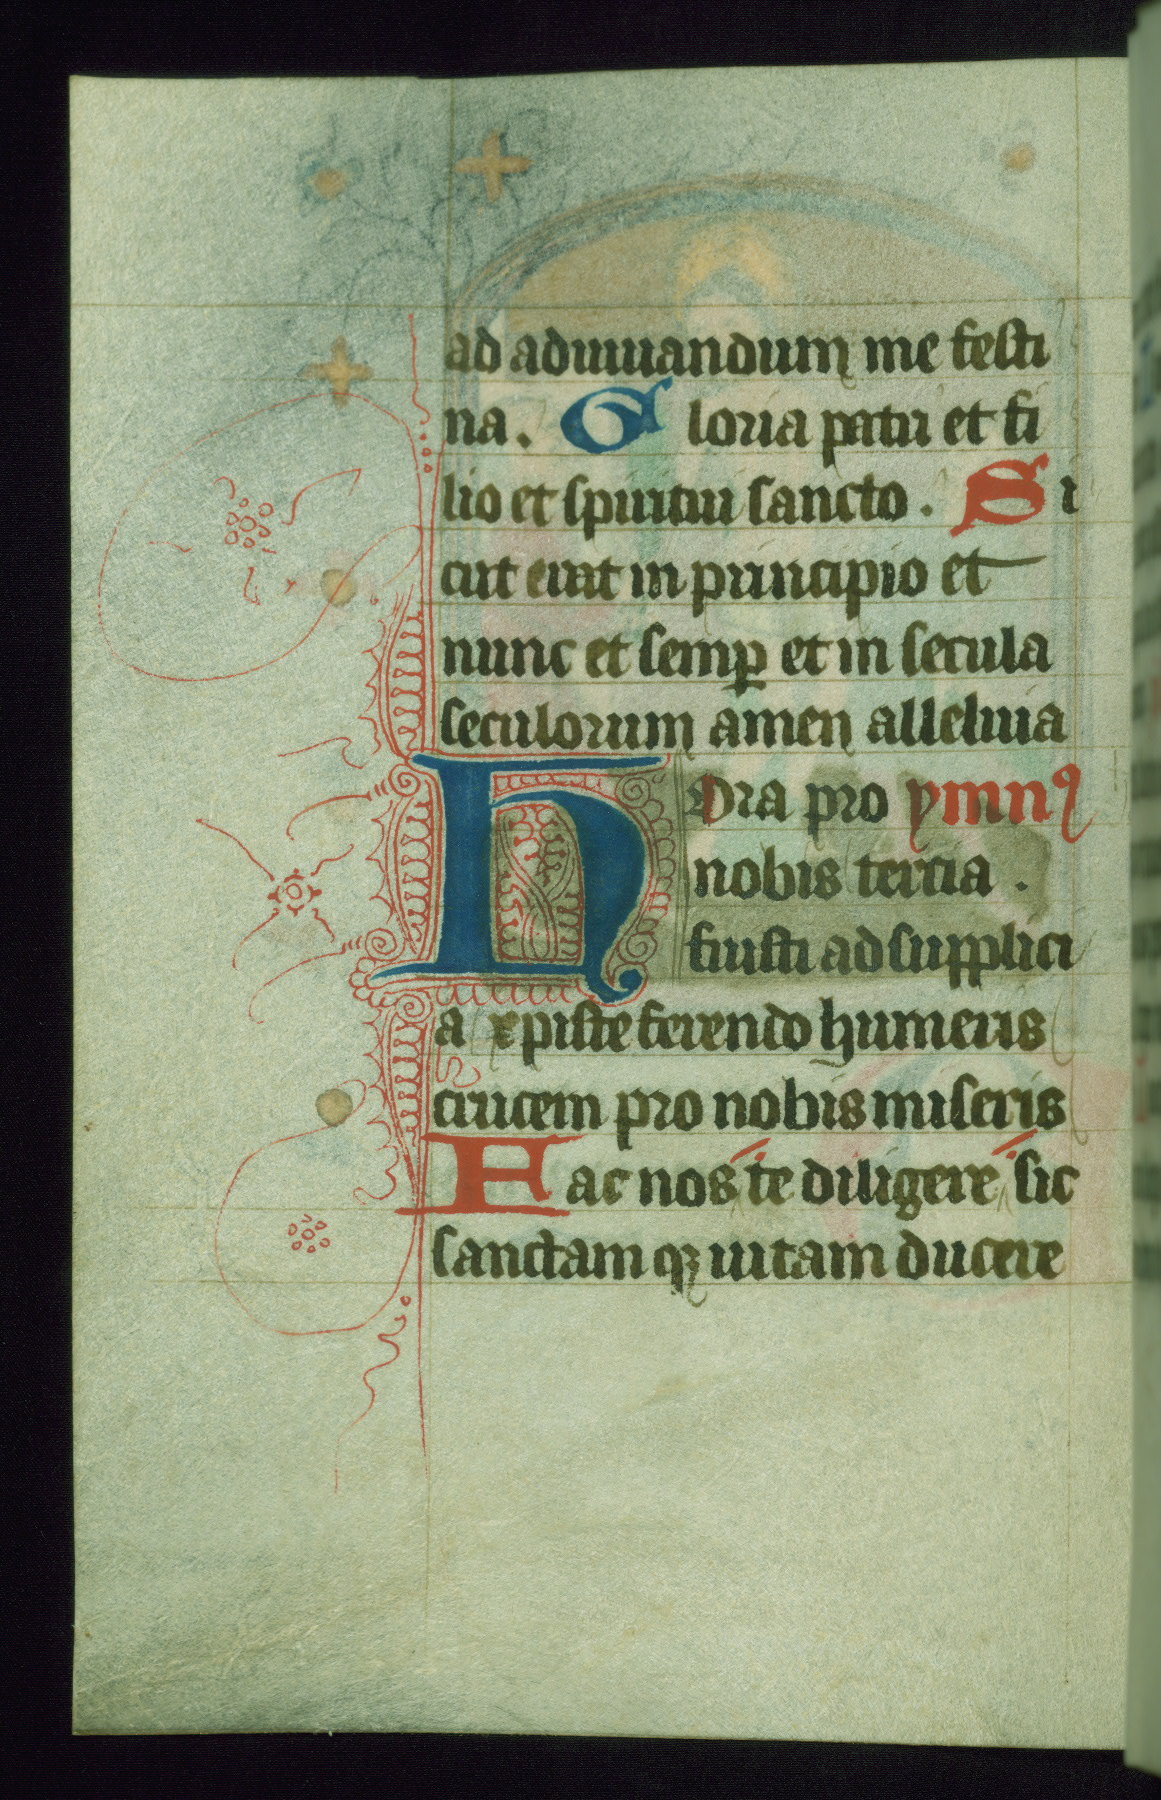 ad adiuuandum me festi
na. Gloria patri et fi
lio et spiritui sancto. Si
cut erat in principio et
nunc et semꝑ et in secula
seculorum amen alleluia
Hora pro ymnꝯ
nobis tercia.
fiusti ad supplici
a xpiste ferendo humeris
crucem pro nobis miseris
Fac nos te diligere sic
sanctam qꝫ uitam ducere